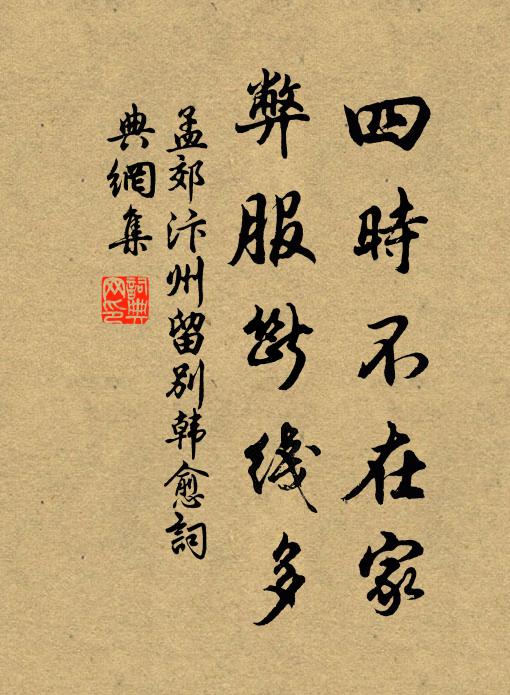 四時不在家
弊服斷线多
孟郊汴州留别韩愈詞
典網集
詞典網印